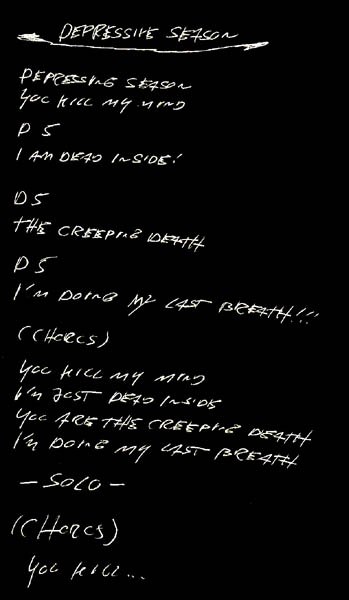 DEPRESSIVE SEASON
DEPRESSING SEASON
YOU KILL MY MIND
D S
I AM DEAD INSIDE!
DS
THE CREEPING DEATH
DS
I'M DOING MY LAST BREATH!!!
(CHORUS)
YOU KILL MY MIND
I'M JUST DEAD INSIDE
YOU ARE THE CREEPING DEATH
I'M DOING MY LAST BREATH
- SOLO -
(CHORUS)
YOU KILL...